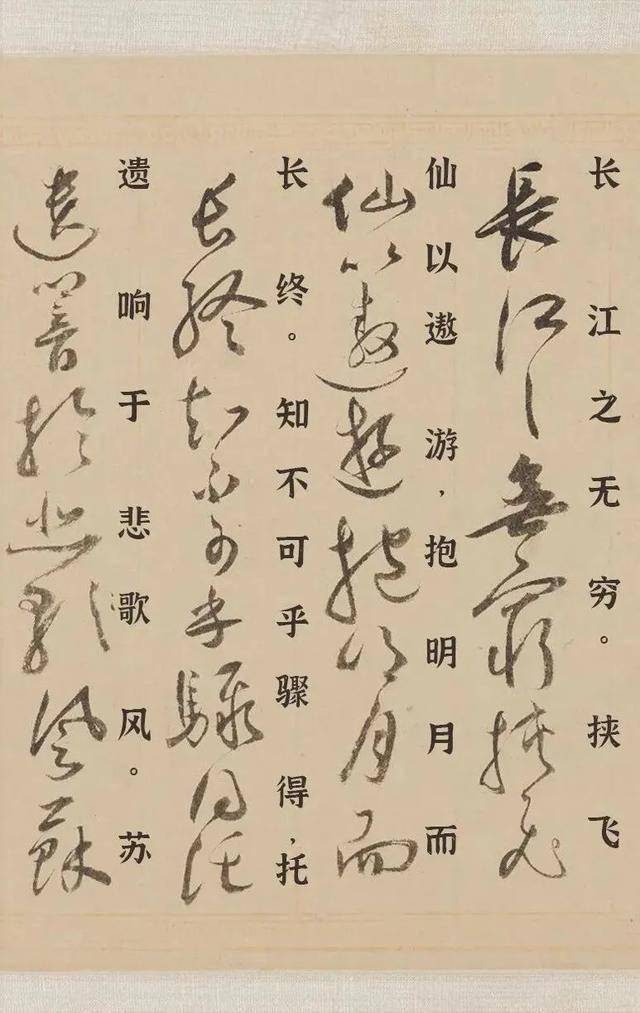 長江之無窮挾飛
长江之无穷。挟飞
仙以遨遊抱明月而
仙以遨游，抱明月而
長終知不可乎驟得託
长终。知不可乎骤得，托
遺響於悲歌風蘇
遗响于悲歌风。苏